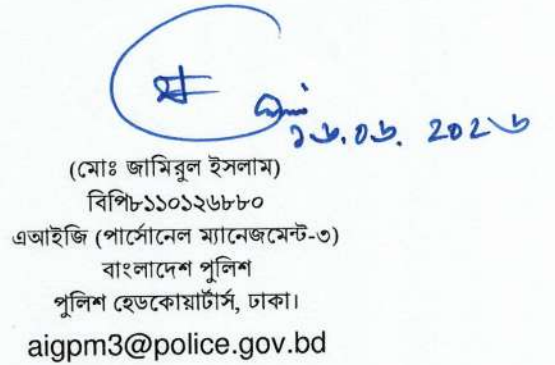 ১৬.০৬. 202৬
(মোঃ জামিরুল ইসলাম)
বিপি৮১১০১২৬৮৮০
এআইজি (পার্সোনেল ম্যানেজমেন্ট-৩)
বাংলাদেশ পুলিশ
পুলিশ হেডকোয়ার্টার্স, ঢাকা।
aigpm3@police.gov.bd